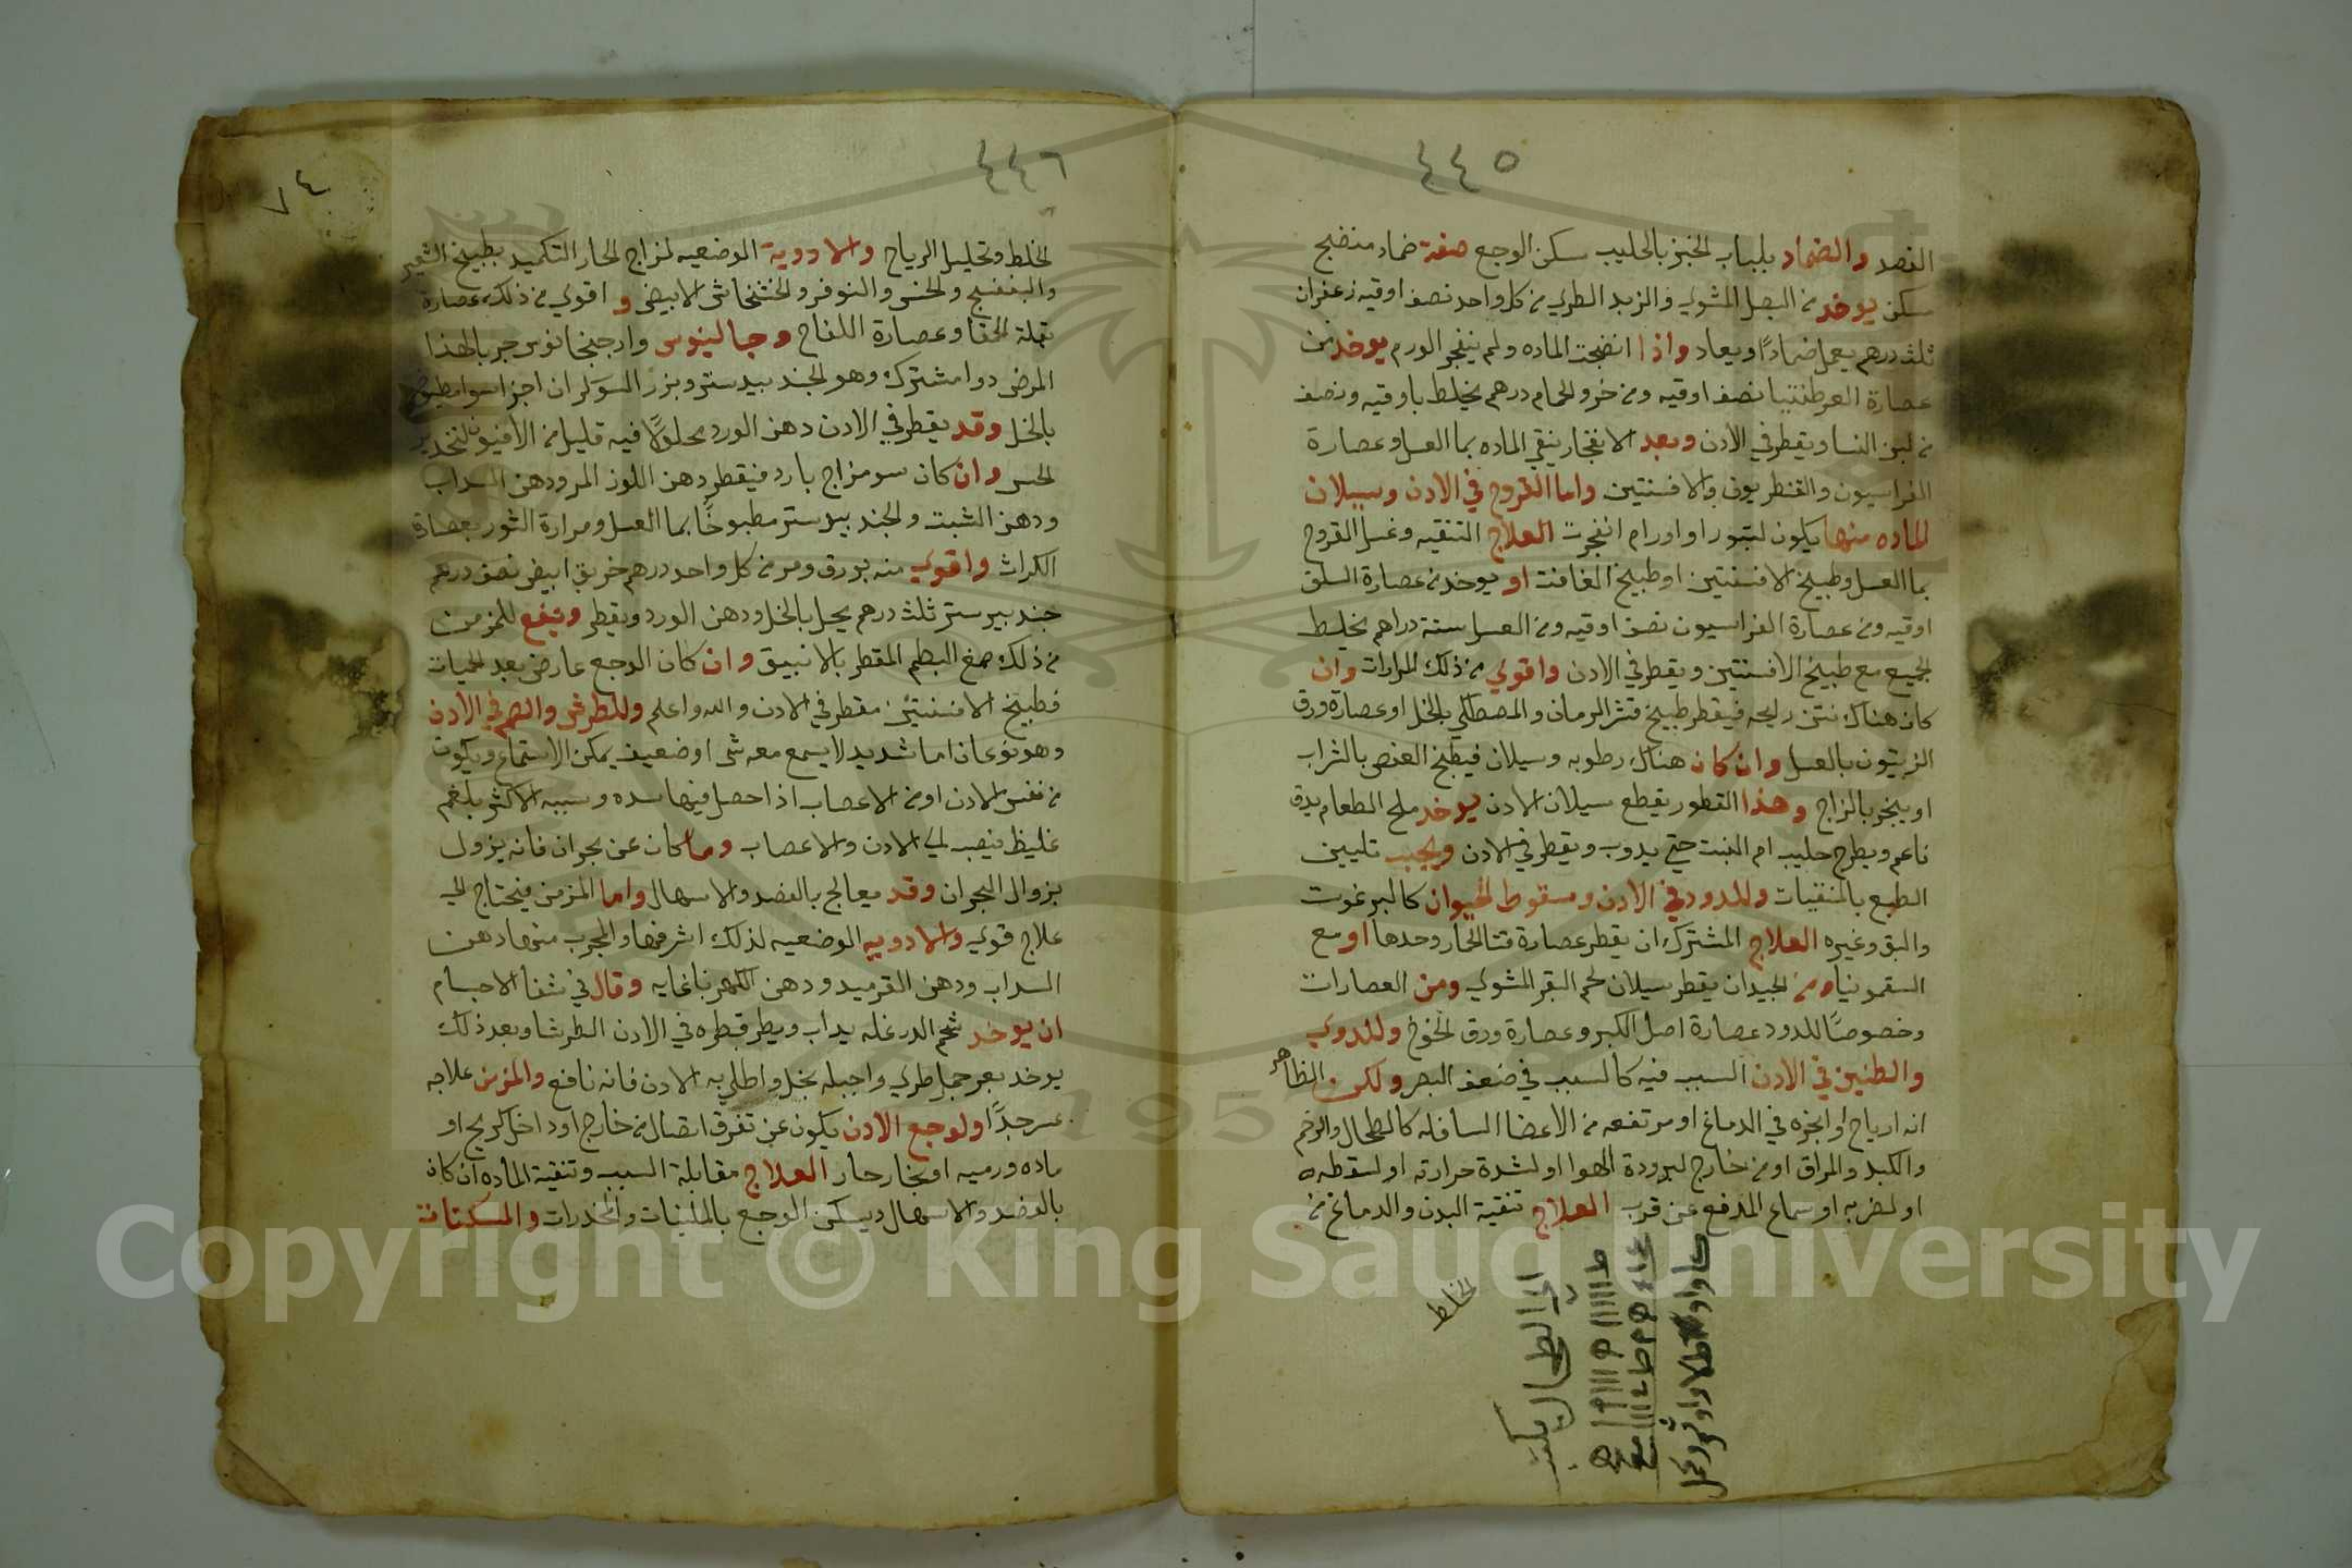 ٤٤٥
الفصد والضماد بلباب الخبز بالحليب سكن الوجع صفة ضماد منضج
مسكن يوخد من البصل المشوي والزبد الطري من كل واحد نصف اوقيه زعفران
ثلث درهم يعمل ضمادًا ويعاد واذا انضجت الماده ولم ينفجر الورم يوخد من
عصارة العرطنيثا نصف اوقيه ومن خرو الحمام درهم يخلط باوقيه ونصف
من لبن النسا ويقطر في الاذن وبعد الانفجار ينقي الماده بما العسل وعصارة
الفراسيون والقنطريون والافسنتين واما القروح في الاذن وسيلان
الماده منها يكون لبثور او اورام انفجرت العلاج التنقيه وغسل القروح
بما العسل وطبيخ الافسنتين او طبيخ الغافت او يوخد من عصارة السلق
اوقيه ومن عصارة الفراسيون نصف اوقيه ومن العسل ستة دراهم يخلط
الجميع مع طبيخ الافسنتين ويقطر في الاذن واقوي من ذلك المرارات وان
كان هناك نتن رايحه فيقطر طبيخ قشر الرمان والمصطكي بالخل او عصارة ورق
الزيتون بالعسل وان كان هناك رطوبه وسيلان فيطبخ العفص بالشراب
او يبخر بالزاج وهذا القطور يقطع سيلان الاذن يوخد ملح الطعام يدق
ناعم ويطرح حليب ام البنت حتي يدوب ويقطر في الاذن ويجب تليين
الطبع بالمنقيات وللدود في الاذن وسقوط الحيوان كالبرغوت
والبق وغيره العلاج المشترك ان يقطر عصارة قثا الحار وحدها او مع
السقمونيا ومن الجيدان يقطر سيلان لحم البقر المشوي ومن العصارات
وخصوصًا للدود عصارة اصل الكبر وعصارة ورق الخوخ وللدوي
والطنين في الاذن السبب فيه كالسبب في ضعف البصر ولكن الظاهر
انه ارياح او ابخره في الدماغ او مرتفعه من الاعضا السافله كالطحال والرحم
والكبد والمراق او من خارج لبرودة الهوا او لشدة حرارته او لسقطه
او لضربه او سماع المدفع عن قرب العلاج تنقية البدن والدماغ من
الخلط
الي الطحال يكتب
٤٤٦
٧٤
الخلط وتحليل الرياح والادوية الموضعيه لمزاج الحار التكميد بطبيخ الشعير
والبنفسج والخس والنوفر والخشخاش الابيض و اقوي من ذلك عصارة
بقلة الحمقا وعصارة اللفاح وجالينوس وارجنجانوس جربا لهذا
المرض دوا مشترك وهو الجند بيدستر وبزر السوكران اجزا سوا مطبوخ
بالخل وقد يقطر في الاذن دهن الورد محلولًا فيه قليل من الافيون لتخدير
الحس وان كان سو مزاج بارد فيقطر دهن اللوز المر ودهن السداب
ودهن الشبت والجند بيدستر مطبوخًا بما العسل ومرارة الثور بعصارة
الكراث واقوي منه بورق ومر من كل واحد درهم خربق ابيض نصف درهم
جند بيرستر ثلث درهم يحل بالخل ودهن الورد ويقطر وينفع للمزمن
من ذلك صمغ البطم المقطر بالانبيق وان كان الوجع عارض بعد الحميات
فطبيخ الافسنتين مقطر في الاذن والله واعلم وللطرش والصمم في الاذن
وهو نوعان اما شديد لا يسمع معه شي او ضعيف يمكن الاستماع ويكون
من نفس الاذن او من الاعصاب اذا حصل فيها سده وسببه الاكثر بلغم
غليظ فيصب الي الاذن والاعصاب وما كان عن بحران فانه يزول
بزوال البحران وقد يعالج بالفصد والاسهال واما المزمن فيحتاج الي
علاج قوي والادويه الوضعيه لذلك اشرفها والمجرب منها دهن
السداب ودهن القرميد ودهن الكهربا غايه وقال في شفا الاجسام
ان يوخد شحم الدرغله يداب ويطر قطره في الاذن الطرشا وبعد ذلك
يوخد بعر جمل طري واجبله بخل واطلي به الاذن فانه نافع والمزمن علاجه
عسر جدًا ولوجع الاذن يكون عن تفرق اتصال من خارج او داخل كريح او
ماده ورميه او بخار حار العلاج مقابلة السبب وتنقية الماده ان كان
بالفصد والاسهال ويسكن الوجع بالملينات والمخدرات والمسكنات
Copyright © King Saud University
1957